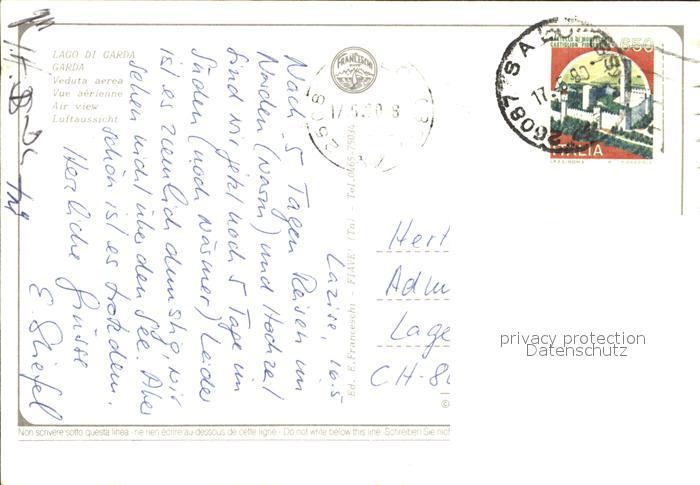 LAGO DI GARDA
GARDA
Veduta aerea
Vue aérienne
Air view
Luftaussicht
FRANCESCHI
17.5.90 8
650
ITALIA
Lazise, 16.5
Nach 5 Tagen Reisen im
Norden (warm) und Hochzeit
sind wir jetzt noch 5 Tage im
Süden (noch wärmer) Leider
ist es ziemlich dunstig, wir
sehen nicht über den See. Aber
schön ist es trotzdem.
Herzliche Grüsse
E. Stiefel
Ed. E.Franceschi - FIAVE (Tn) - Tel.
Her
Adm
Lage
CH-8
privacy protection
Datenschutz
©
Non scrivere sotto questa linea - ne rien écrire au-dessous de cette ligne - Do not write below this line - Schreiben Sie nich